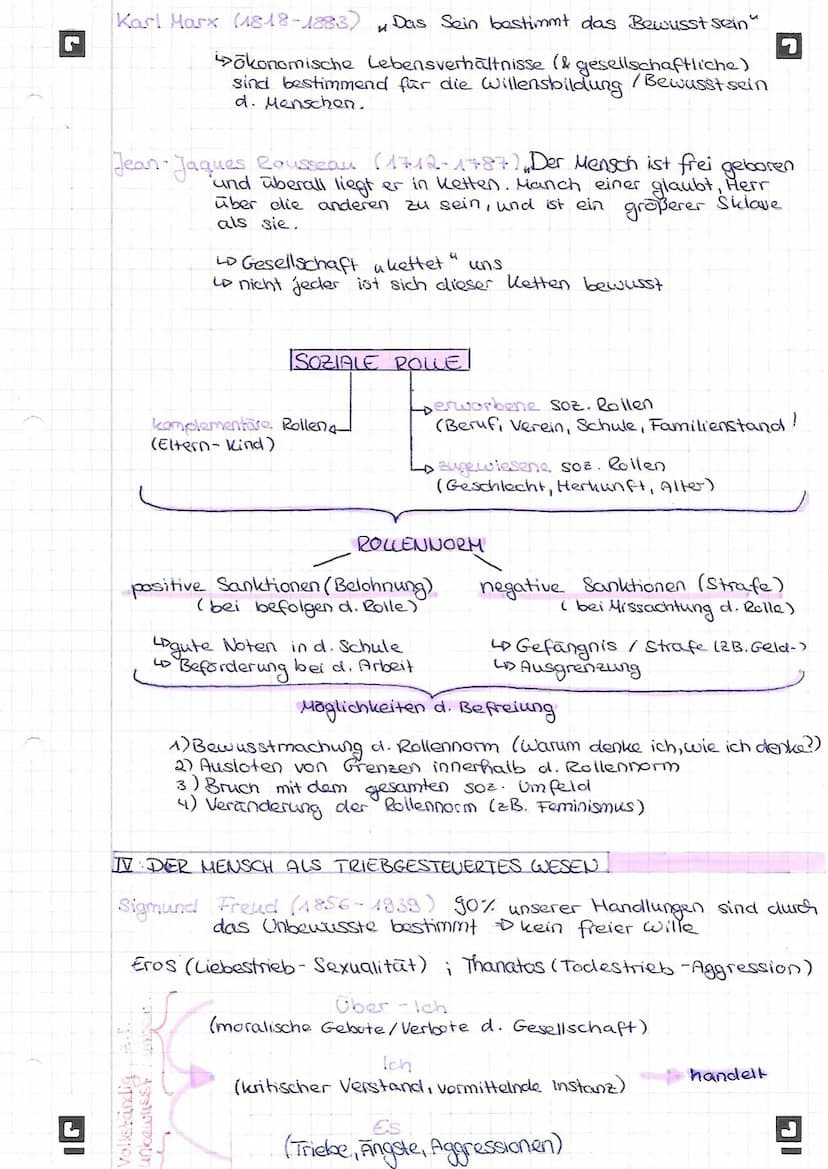 Karl Marx (1818-1883) „Das Sein bestimmt das Bewusstsein"
↳ ökonomische Lebensverhältnisse (& gesellschaftliche)
sind bestimmend für die Willensbildung / Bewusstsein
d. Menschen.
Jean-Jaques Rousseau (1712-1787) „Der Mensch ist frei geboren
und überall liegt er in Ketten. Manch einer glaubt, Herr
über die anderen zu sein, und ist ein größerer Sklave
als sie.
↳ Gesellschaft „kettet" uns
↳ nicht jeder ist sich dieser Ketten bewusst
SOZIALE ROLLE
erworbene soz. Rollen
komplementäre Rollen
(Beruf, Verein, Schule, Familienstand)
(Eltern-Kind)
zugewiesene soz. Rollen
(Geschlecht, Herkunft, Alter)
ROLLENNORM
positive Sanktionen (Belohnung)
negative Sanktionen (Strafe)
(bei befolgen d. Rolle)
(bei Missachtung d. Rolle)
↳ gute Noten in d. Schule
↳ Gefängnis / Strafe (zB. Geld-)
↳ Beförderung bei d. Arbeit
↳ Ausgrenzung
Möglichkeiten d. Befreiung
1) Bewusstmachung d. Rollennorm (Warum denke ich, wie ich denke?)
2) Ausloten von Grenzen innerhalb d. Rollennorm
3) Bruch mit dem gesamten soz. Umfeld
4) Veränderung der Rollennorm (zB. Feminismus)
IV. DER MENSCH ALS TRIEBGESTEUERTES WESEN
Sigmund Freud (1856-1939) 90% unserer Handlungen sind durch
das Unbewusste bestimmt → kein freier Wille
Eros (Liebestrieb - Sexualität) ; Thanatos (Todestrieb - Aggression)
Über-Ich
(moralische Gebote / Verbote d. Gesellschaft)
Ich
(kritischer Verstand, vermittelnde Instanz)
handelt
Es
(Triebe, Ängste, Aggressionen)
Vollständig
unbewusst